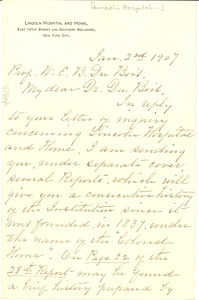 [Lincoln Hospital...]
LINCOLN HOSPITAL AND HOME,
EAST 141ST STREET AND SOUTHERN BOULEVARD,
NEW YORK CITY.
Jan. 2nd 1907
Prof. W. E. B. Du Bois,
My dear Dr. Du Bois.
In reply
to your letter of inquiry
concerning Lincoln Hospital
and Home, I am sending
you under separate cover
several Reports, which will
give you a consecutive history
of the Institution since it
was founded, in 1839, under
the name of the "Colored
Home". On Page 22 of the
28th Report may be found
a brief history prepared by